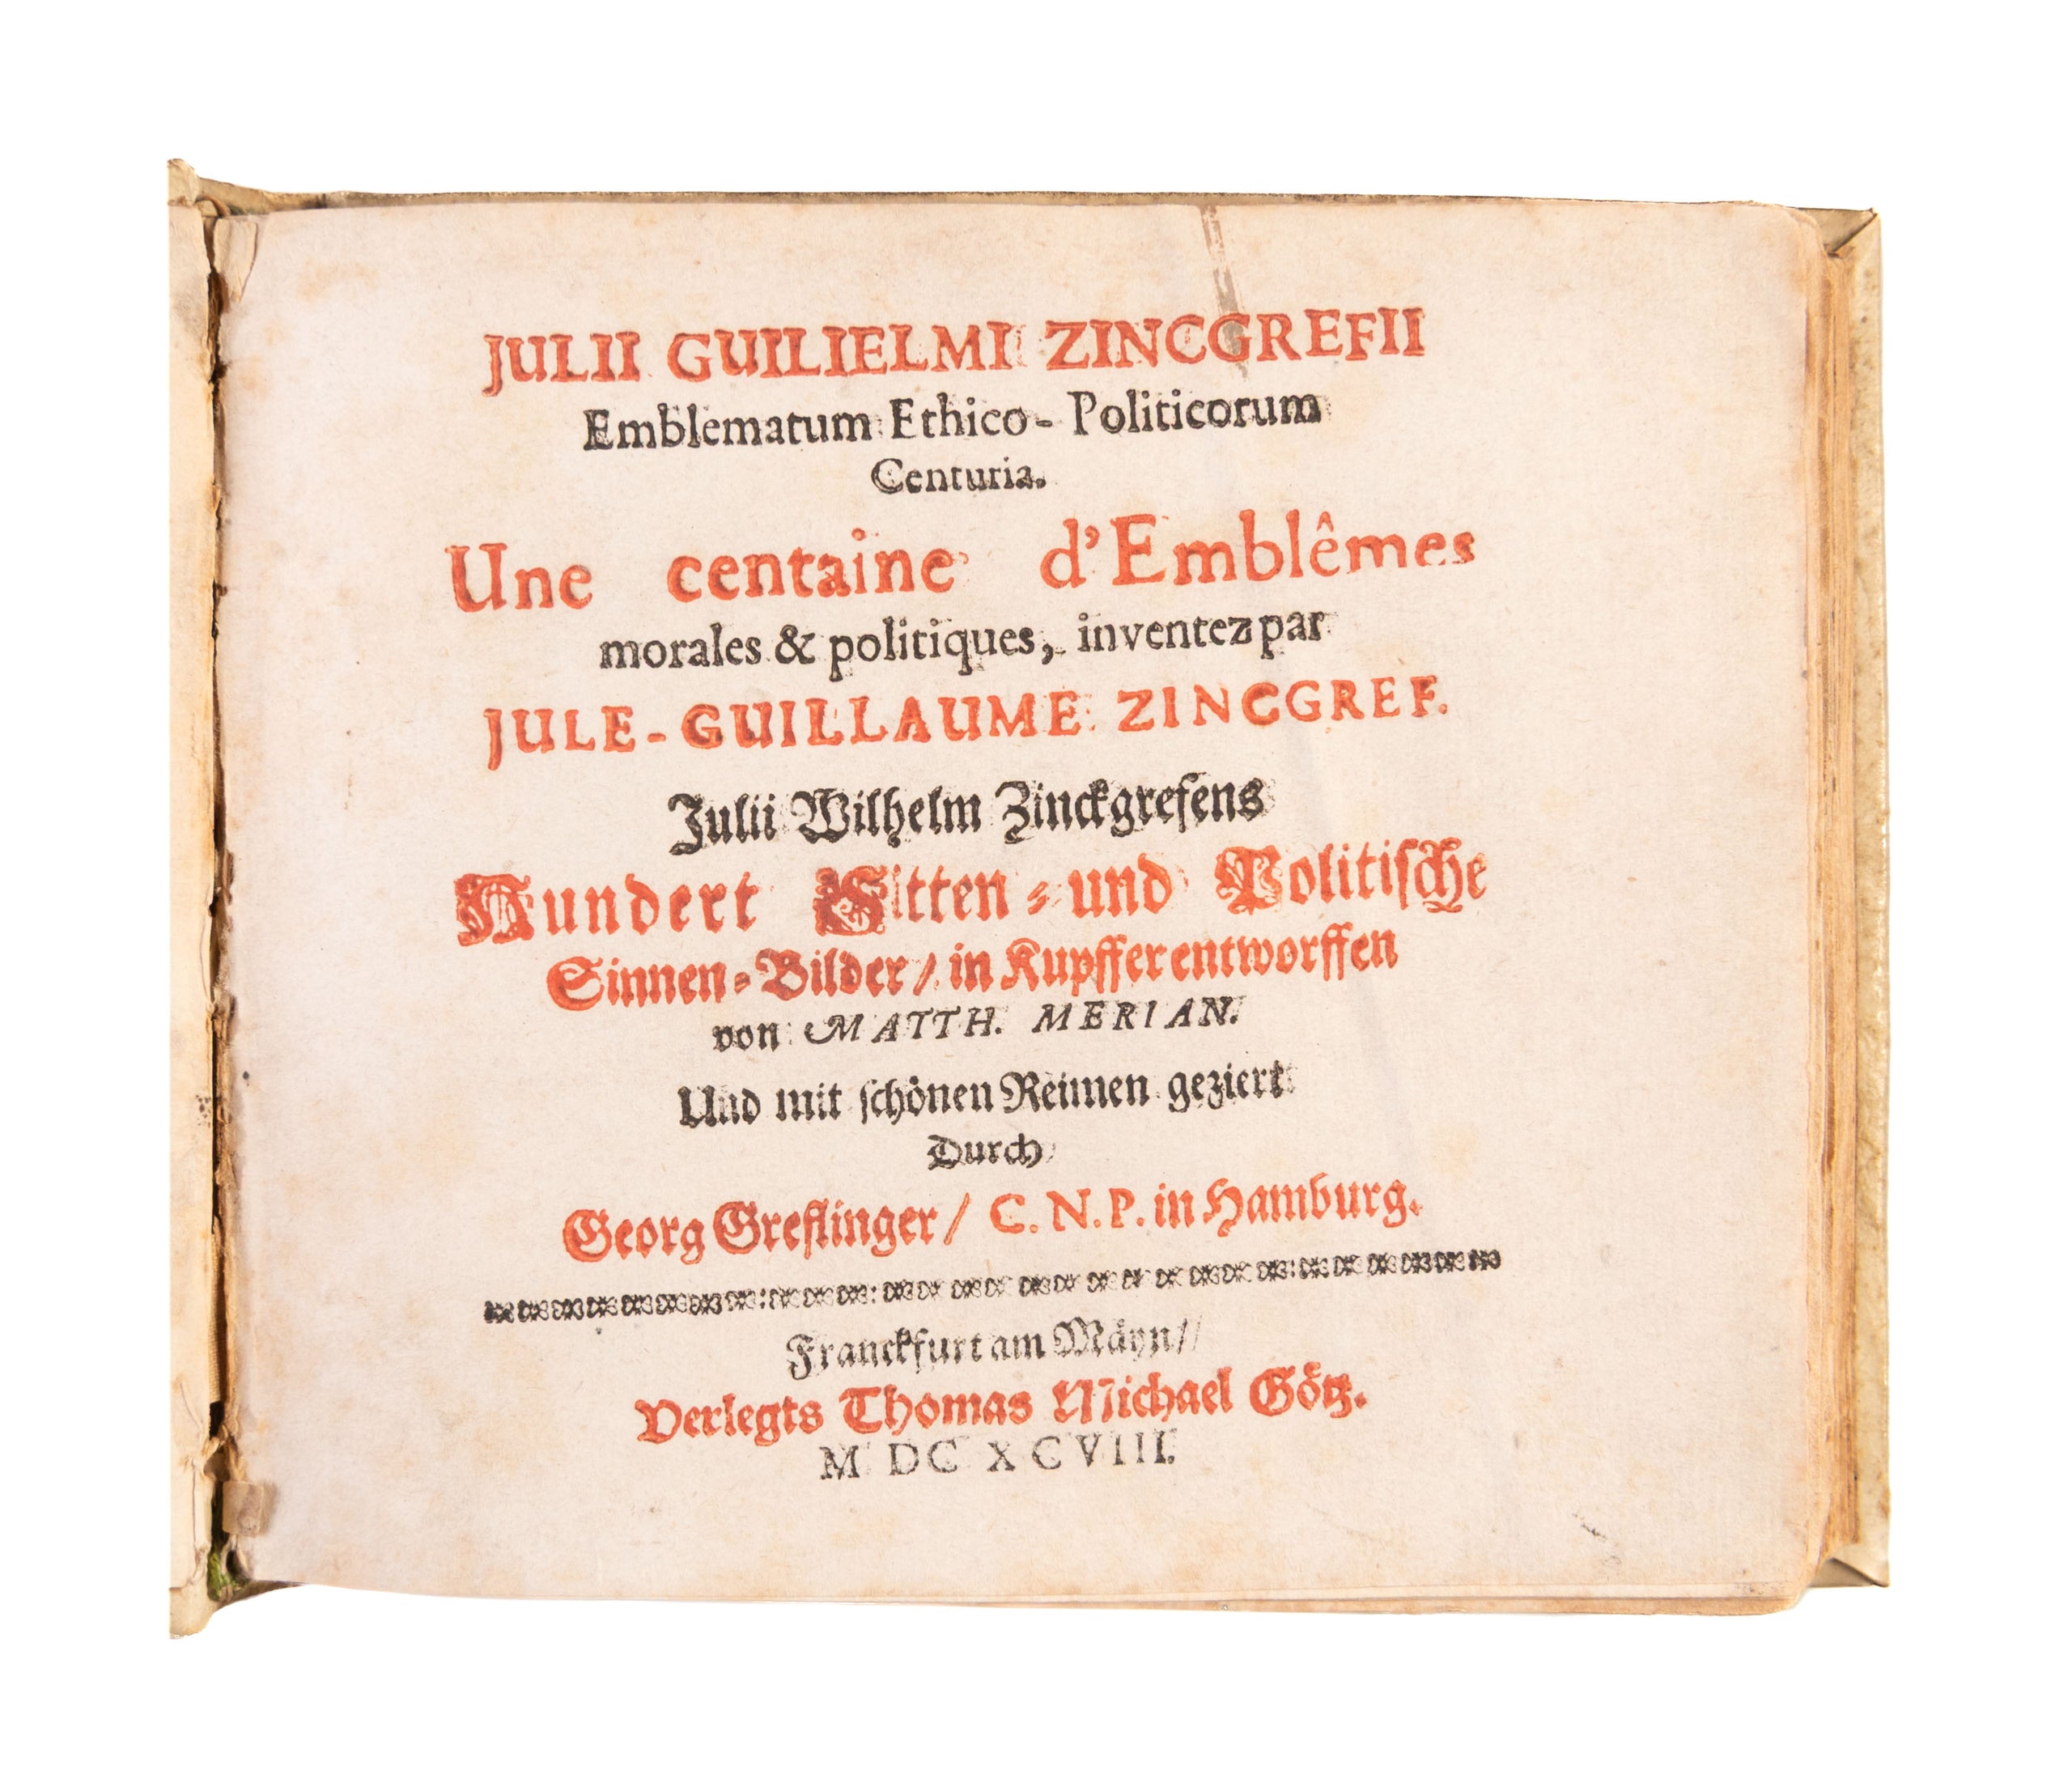 JULII GUILIELMI ZINCGREFII
Emblematum Ethico-Politicorum
Centuria.
Une centaine d'Emblêmes
morales & politiques, inventez par
JULE-GUILLAUME ZINCGREF.
Julii Wilhelm Zinckgrefens
Hundert Sitten- und Politische
Sinnen-Bilder/ in Kupffer entworffen
von MATTH. MERIAN.
Und mit schönen Reimen geziert
Durch
Georg Greflinger/ C. N. P. in Hamburg.
Franckfurt am Mäyn//
Verlegts Thomas Michael Götz.
M DC XCVIII.